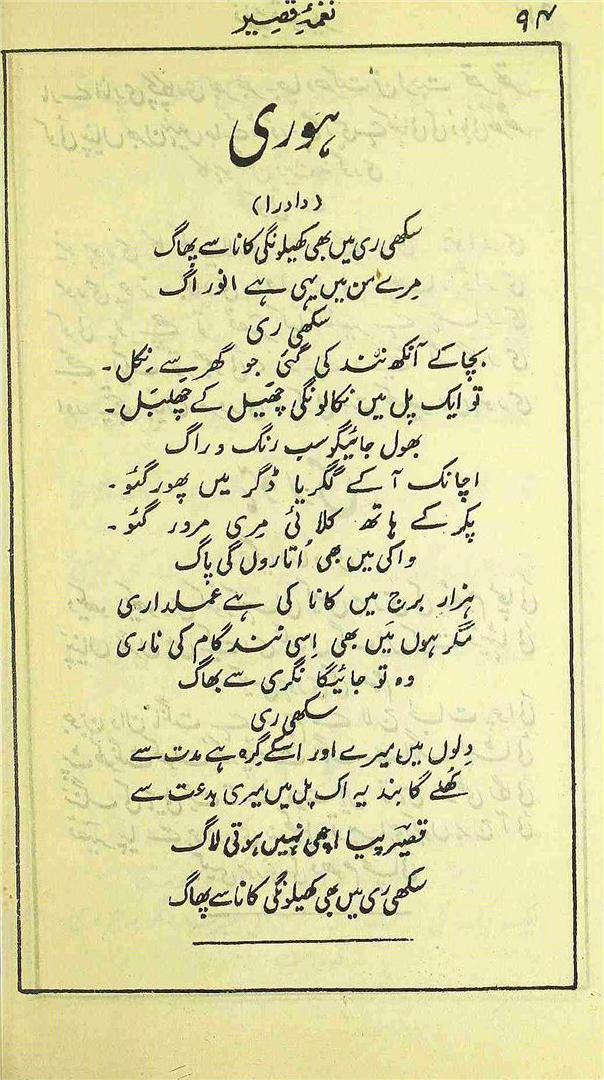 ۹۴
نغمۂ قصیر
ہوری
(دادرا)
سکھی ری میں بھی کھیلونگی کانا سے پھاگ
مِرے من میں یہی ہے انوراگ
سکھی ری
بچا کے آنکھ نند کی گئی جو گھر سے نِکل۔
تو ایک پل میں نکالونگی چھیل کے چھلبَل۔
بھول جائیگو سب رنگ و راگ
اچانک آ کے گگریا ڈگر میں پھور گئو۔
پکر کے ہاتھ کلائی مِری مرور گئو۔
واکی میں بھی اُتاروں گی پاگ
ہزار برج میں کانا کی ہے عملداری
مگر ہوں مَیں بھی اِسی نند گام کی ناری
وہ تو جائیگا نگری سے بھاگ
سکھی ری
دِلوں میں میرے اور اسکے گِرہ ہے مدت سے
کُھلے گا بند یہ اک پل میں میری بدعت سے
قصیرؔ پیا اچھی نہیں ہوتی لاگ
سکھی ری میں بھی کھیلونگی کانا سے پھاگ